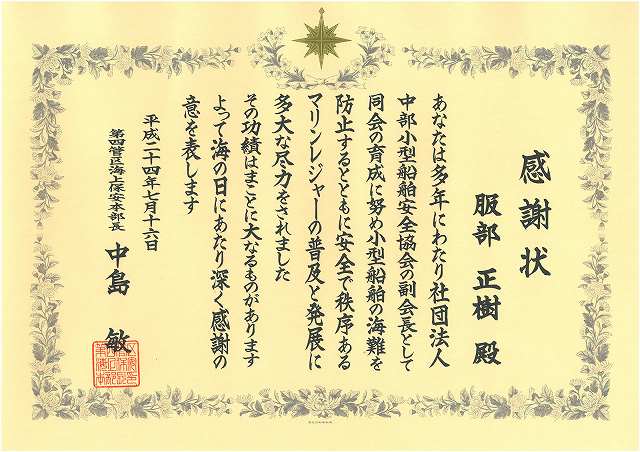 感謝状
服部 正樹 殿
あなたは多年にわたり社団法人
中部小型船舶安全協会の副会長として
同会の育成に努め小型船舶の海難を
防止するとともに安全で秩序ある
マリンレジャーの普及と発展に
多大な尽力をされました
その功績はまことに大なるものがあります
よって海の日にあたり深く感謝の
意を表します
平成二十四年七月十六日
第四管区海上保安本部長
中島 敏